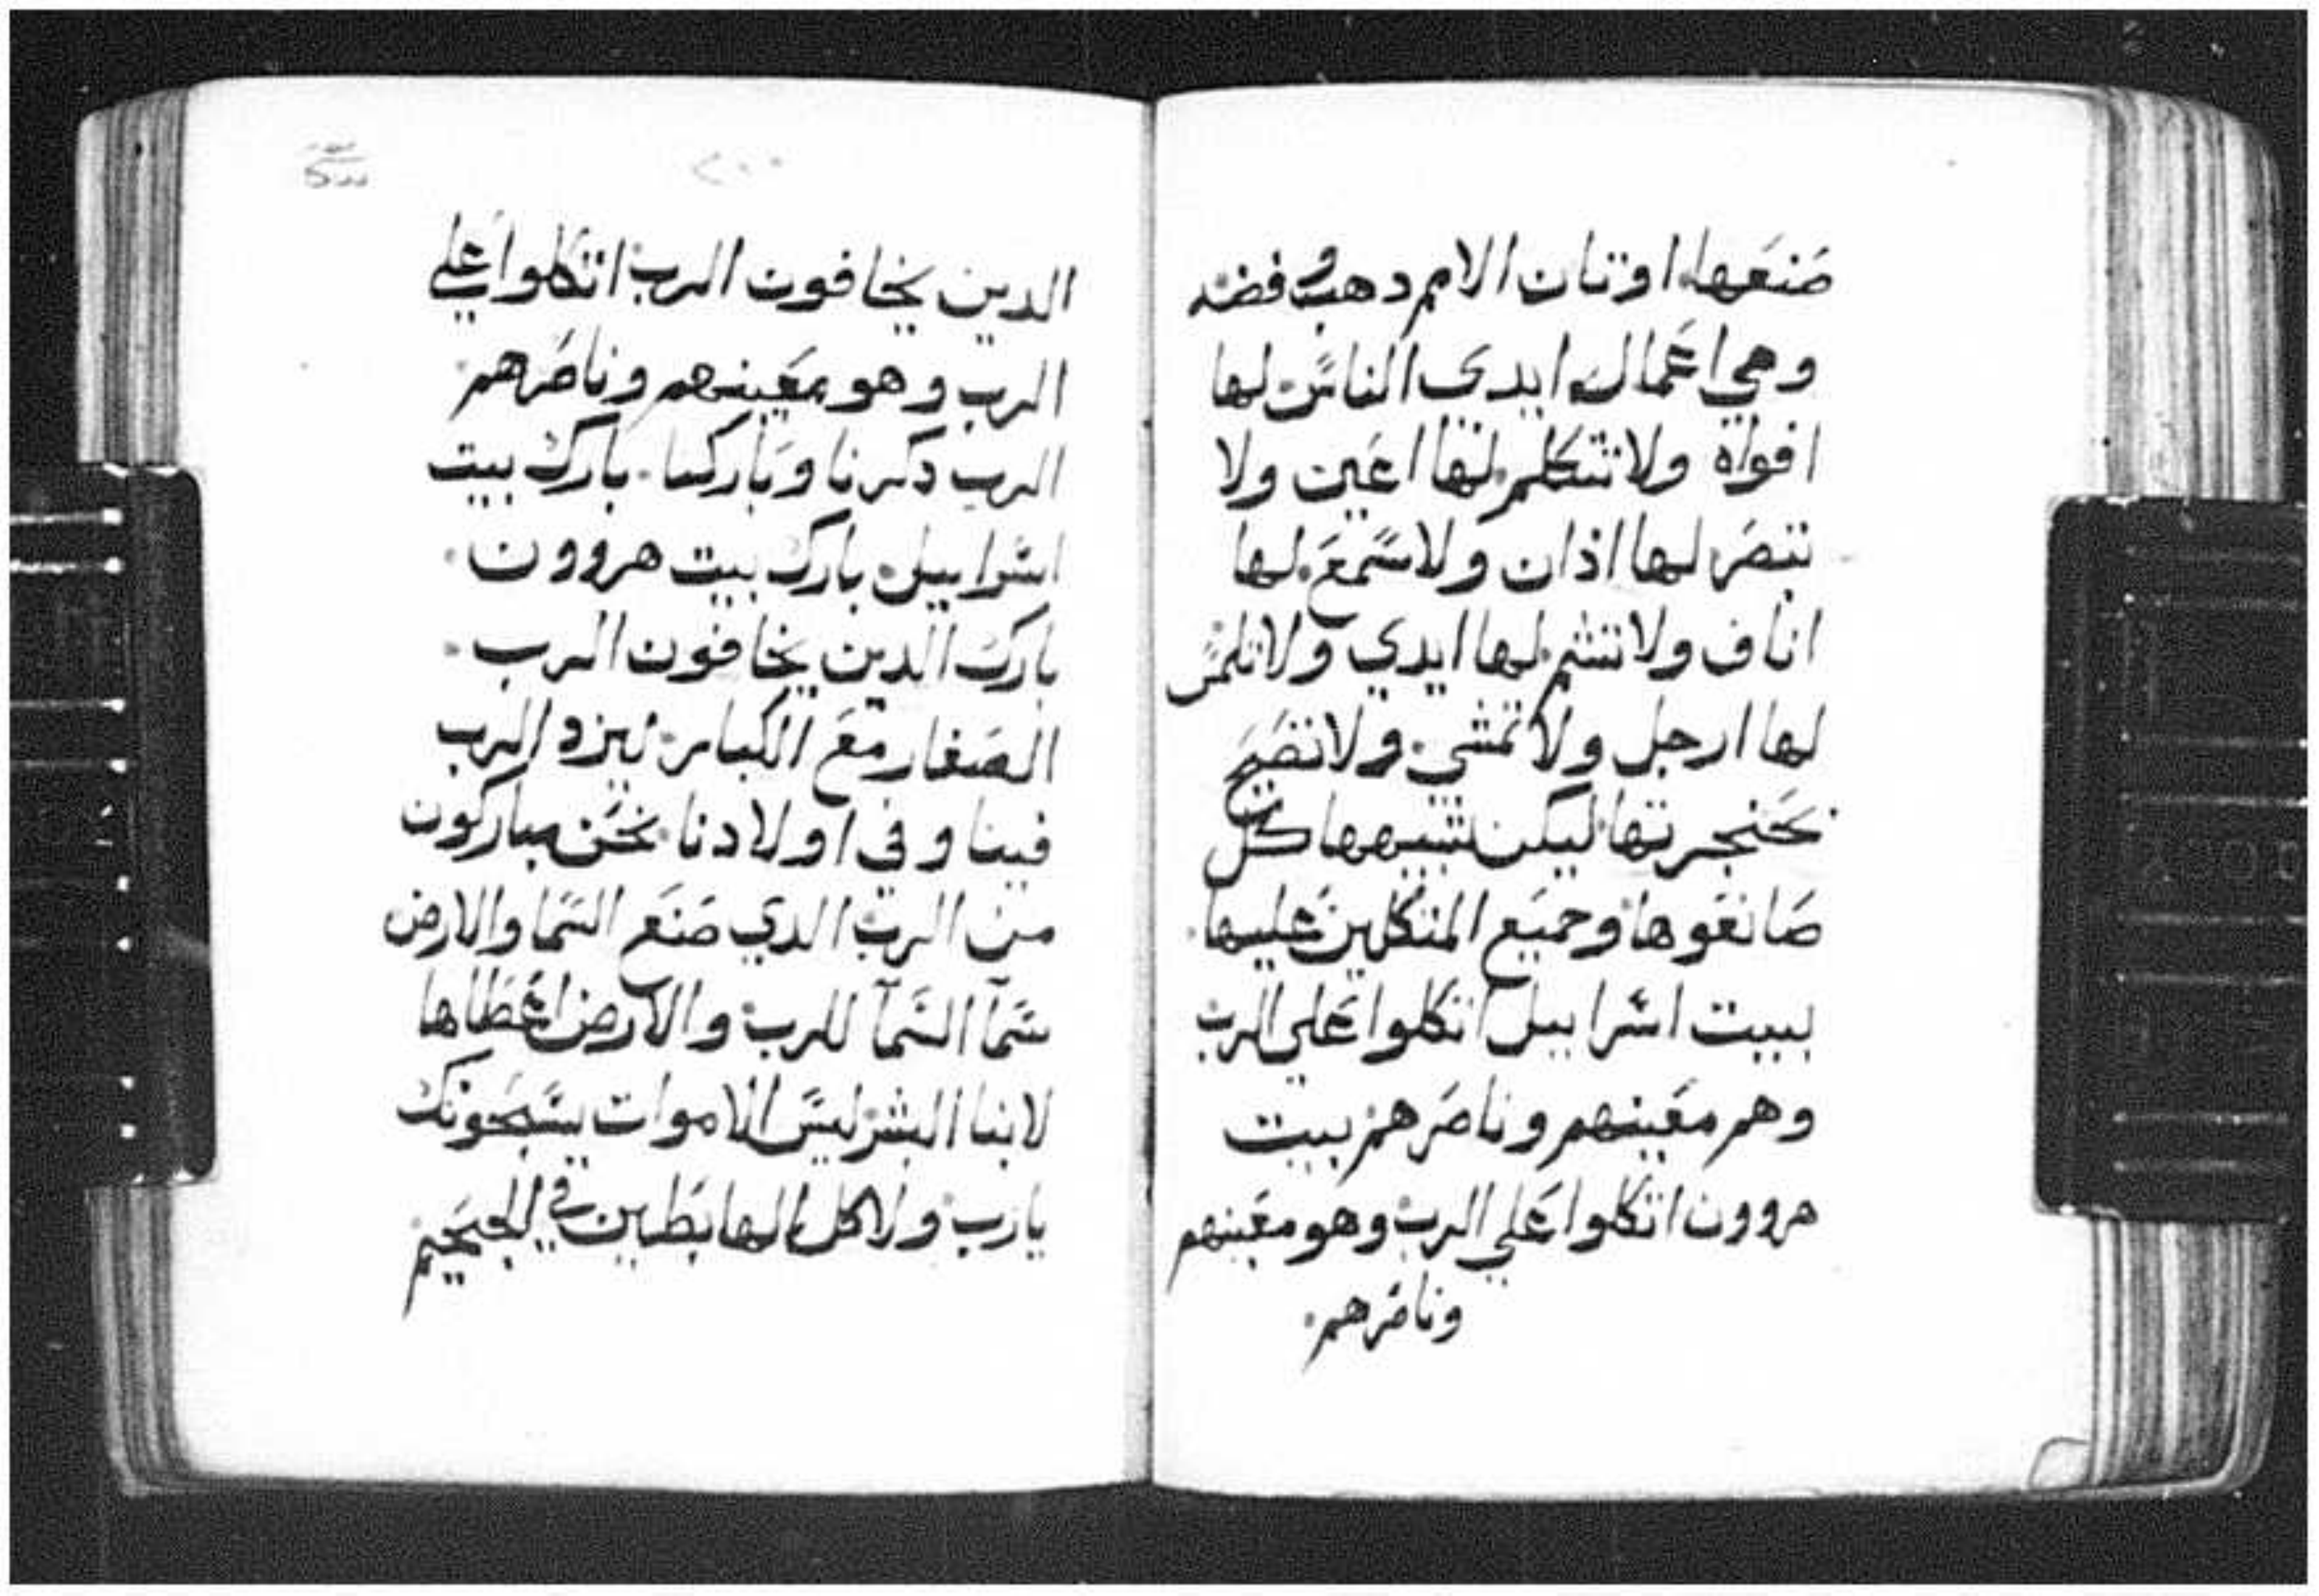 صنعها اوتان الامم دهب وفضه
وهي اعمال ايدي الناس لها
افواه ولا تتكلم لها اعين ولا
تبصر لها اذان ولا تسمع لها
اناف ولا تشم لها ايدي ولا تلمس
لها ارجل ولا تمشي ولا تصيح
بحنجرتها ليكن تشبهها كل
صانعوها وجميع المتكلين عليها
بيت اسراييل اتكلوا علي الرب
وهو معينهم وناصرهم بيت
هروون اتكلوا علي الرب وهو معينهم
وناصرهم
٢٠٠
الدين يخافون الرب اتكلوا علي
الرب وهو معينهم وناصرهم
الرب دكرنا وباركنا بارك بيت
اسراييل بارك بيت هروون
بارك الدين يخافون الرب
الصغار مع الكبار ليزد الرب
فينا وفي اولادنا نحن مباركون
من الرب الدي صنع السما والارض
سمآ السمآ للرب والارض اعطاها
لابنا البشر ليس الاموات يسبحونك
يارب ولا كل الهابطين في الجحيم